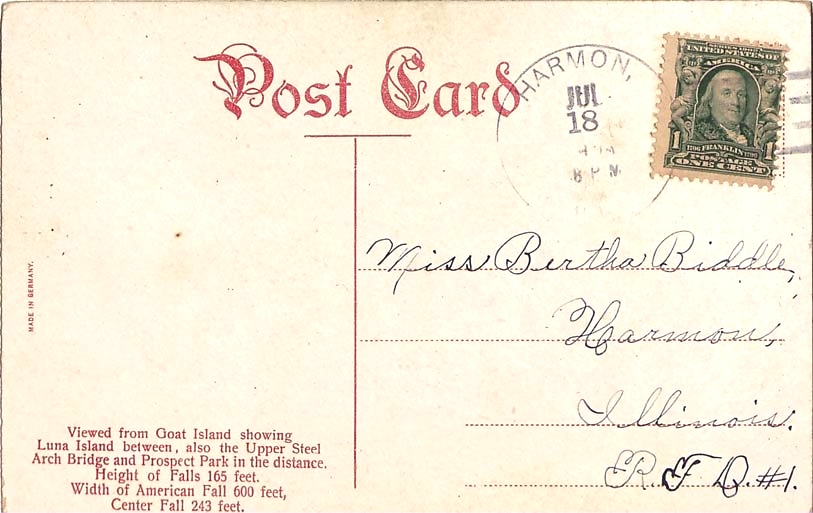 Post Card
HARMON,
JUL
18
6 P M
SERIES 1902
UNITED STATES OF
AMERICA
1 1706 FRANKLIN 1790 1
POSTAGE
ONE CENT
Miss Bertha Biddle,
Harmon,
Illinois.
R. F. D. #1.
MADE IN GERMANY.
Viewed from Goat Island showing
Luna Island between, also the Upper Steel
Arch Bridge and Prospect Park in the distance.
Height of Falls 165 feet.
Width of American Fall 600 feet,
Center Fall 243 feet.